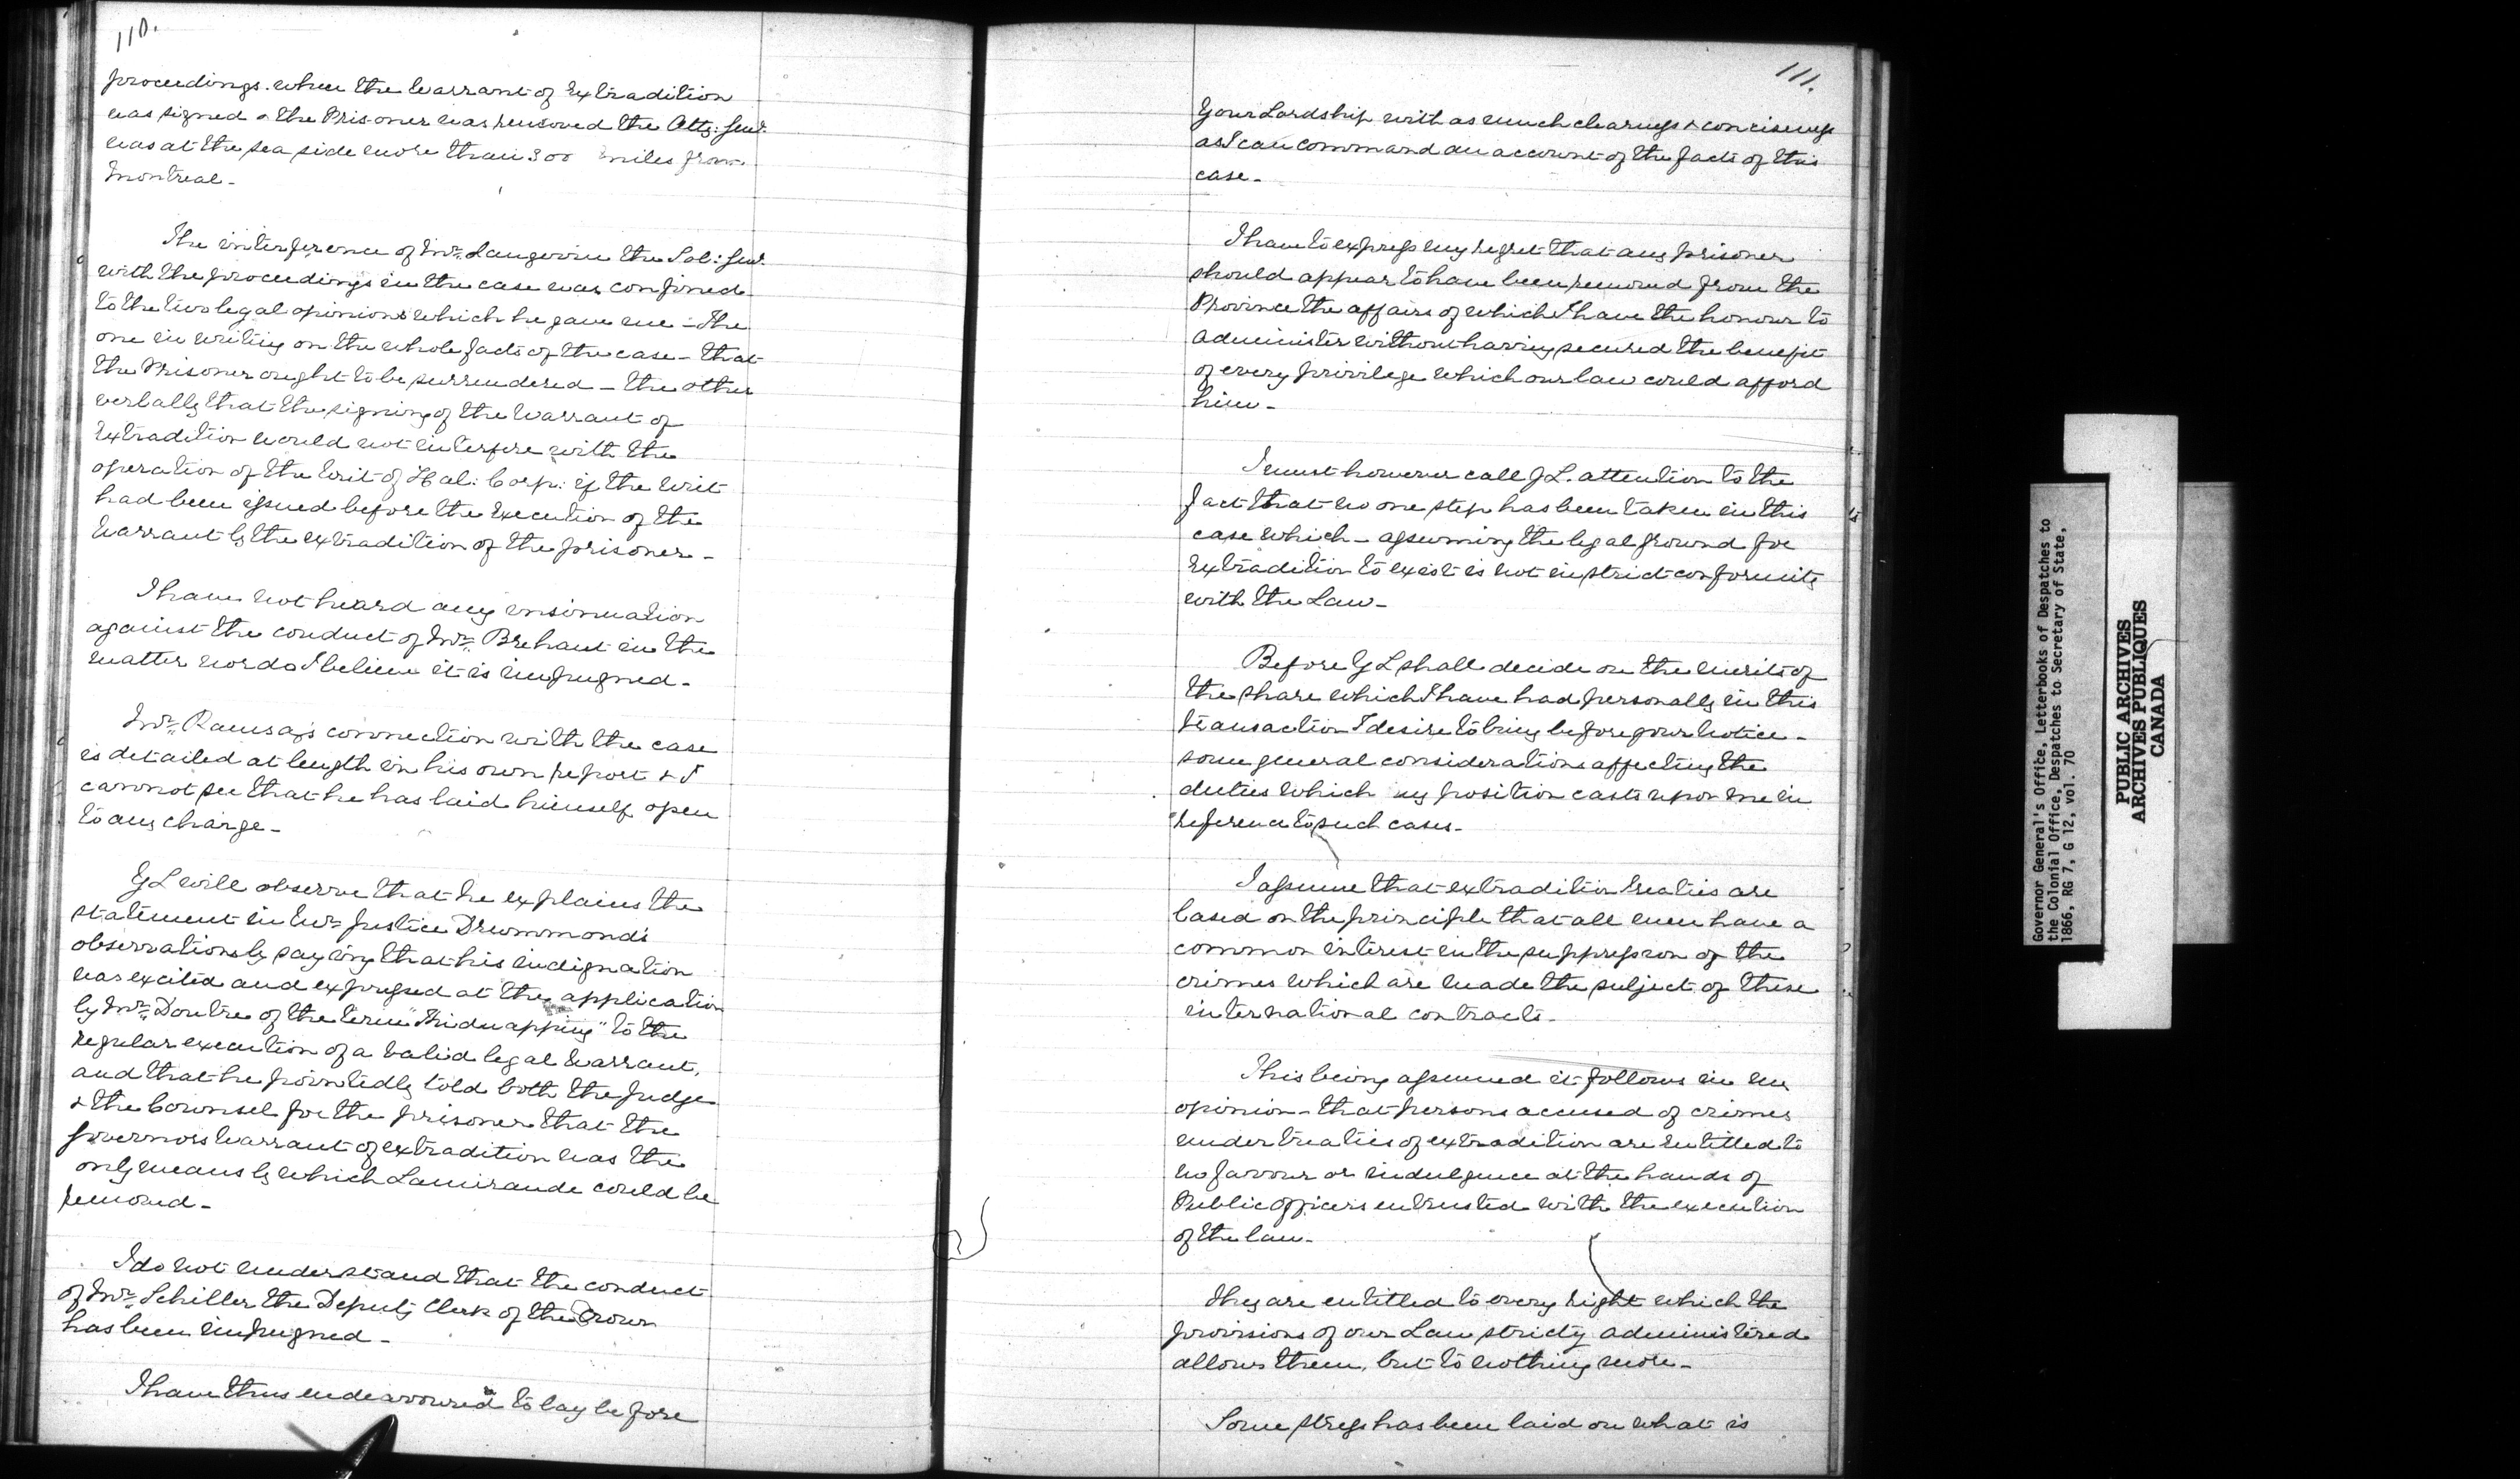 110.
proceedings. when the Warrant of Extradition
was signed & the Prisoner was removed the Atty: Genl:
was at the sea side more than 300 miles from
Montreal -
The interference of Mr. Langevin the Sol: Genl:
with the proceedings in the case was confined
to the two legal opinions which he gave me - The
one in writing on the whole facts of the case - that
the Prisoner ought to be surrendered - the other
verbally that the signing of the Warrant of
Extradition would not interfere with the
operation of the Writ of Hab: Corp: if the Writ
had been issued before the Execution of the
Warrant by the extradition of the prisoner -
I have not heard any insinuation
against the conduct of Mr. Brehaut in the
matter nor do I believe it is impugned -
Mr. Ramsay's connection with the case
is detailed at length in his own report & I
cannot see that he has laid himself open
to any charge -
YL will observe that he explains the
statement in Mr. Justice Drummond's
observations by saying that his indignation
was excited and expressed at the application
by Mr. Doutre of the term "Kidnapping" to the
regular execution of a valid legal Warrant,
and that he pointedly told both the Judge
& the Counsel for the prisoner that the
Governors Warrant of extradition was the
only means by which Lamirande could be
removed -
I do not understand that the conduct
of Mr. Schiller the Deputy Clerk of the Crown
has been impugned -
I have thus endeavoured to lay before
111.
Your Lordship with as much clearness & conciseness
as I can command an account of the facts of this
case -
I have to express my regret that any prisoner
should appear to have been removed from the
Province the affairs of which I have the honour to
administer without having secured the benefit
of every privilege which our law could afford
him -
I must however call YL. attention to the
fact that no one step has been taken in this
case which - assuming the legal ground for
Extradition to exist is not in strict conformity
with the Law -
Before YL shall decide on the merits of
the share which I have had personally in this
transaction I desire to bring before your notice -
some general considerations affecting the
duties which my position casts upon me in
reference to such cases -
I assume that extradition treaties are
based on the principle that all men have a
common interest in the suppression of the
crimes which are made the subject of these
international contracts -
This being assumed it follows in my
opinion - that persons accused of crimes
under treaties of extradition are entitled to
no favour or indulgence at the hands of
Public Officers entrusted with the execution
of the law -
They are entitled to every right which the
provisions of our Law strictly administered
allows them, but to nothing more -
Some stress has been laid on what is
Governor General's Office, Letterbooks of Despatches to
the Colonial Office, Despatches to Secretary of State,
1866, RG 7, G 12, vol. 70
PUBLIC ARCHIVES
ARCHIVES PUBLIQUES
CANADA